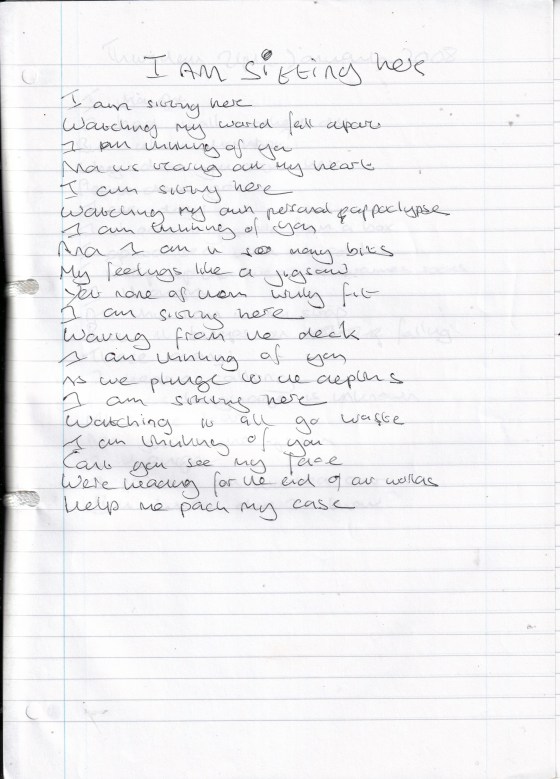 I AM Sitting here
I am sitting here
Watching my world fall apart
I am thinking of you
And it's tearing out my heart
I am sitting here
Watching my own personal appoclypse
I am thinking of you
And I am in so many bits
My feelings like a jigsaw
Yet none of them really fit
I am sitting here
Waving from the deck
I am thinking of you
As we plunge to the depths
I am sitting here
Watching it all go waste
I am thinking of you
Can you see my face
We're heading for the end of our worlds
Help me pack my case